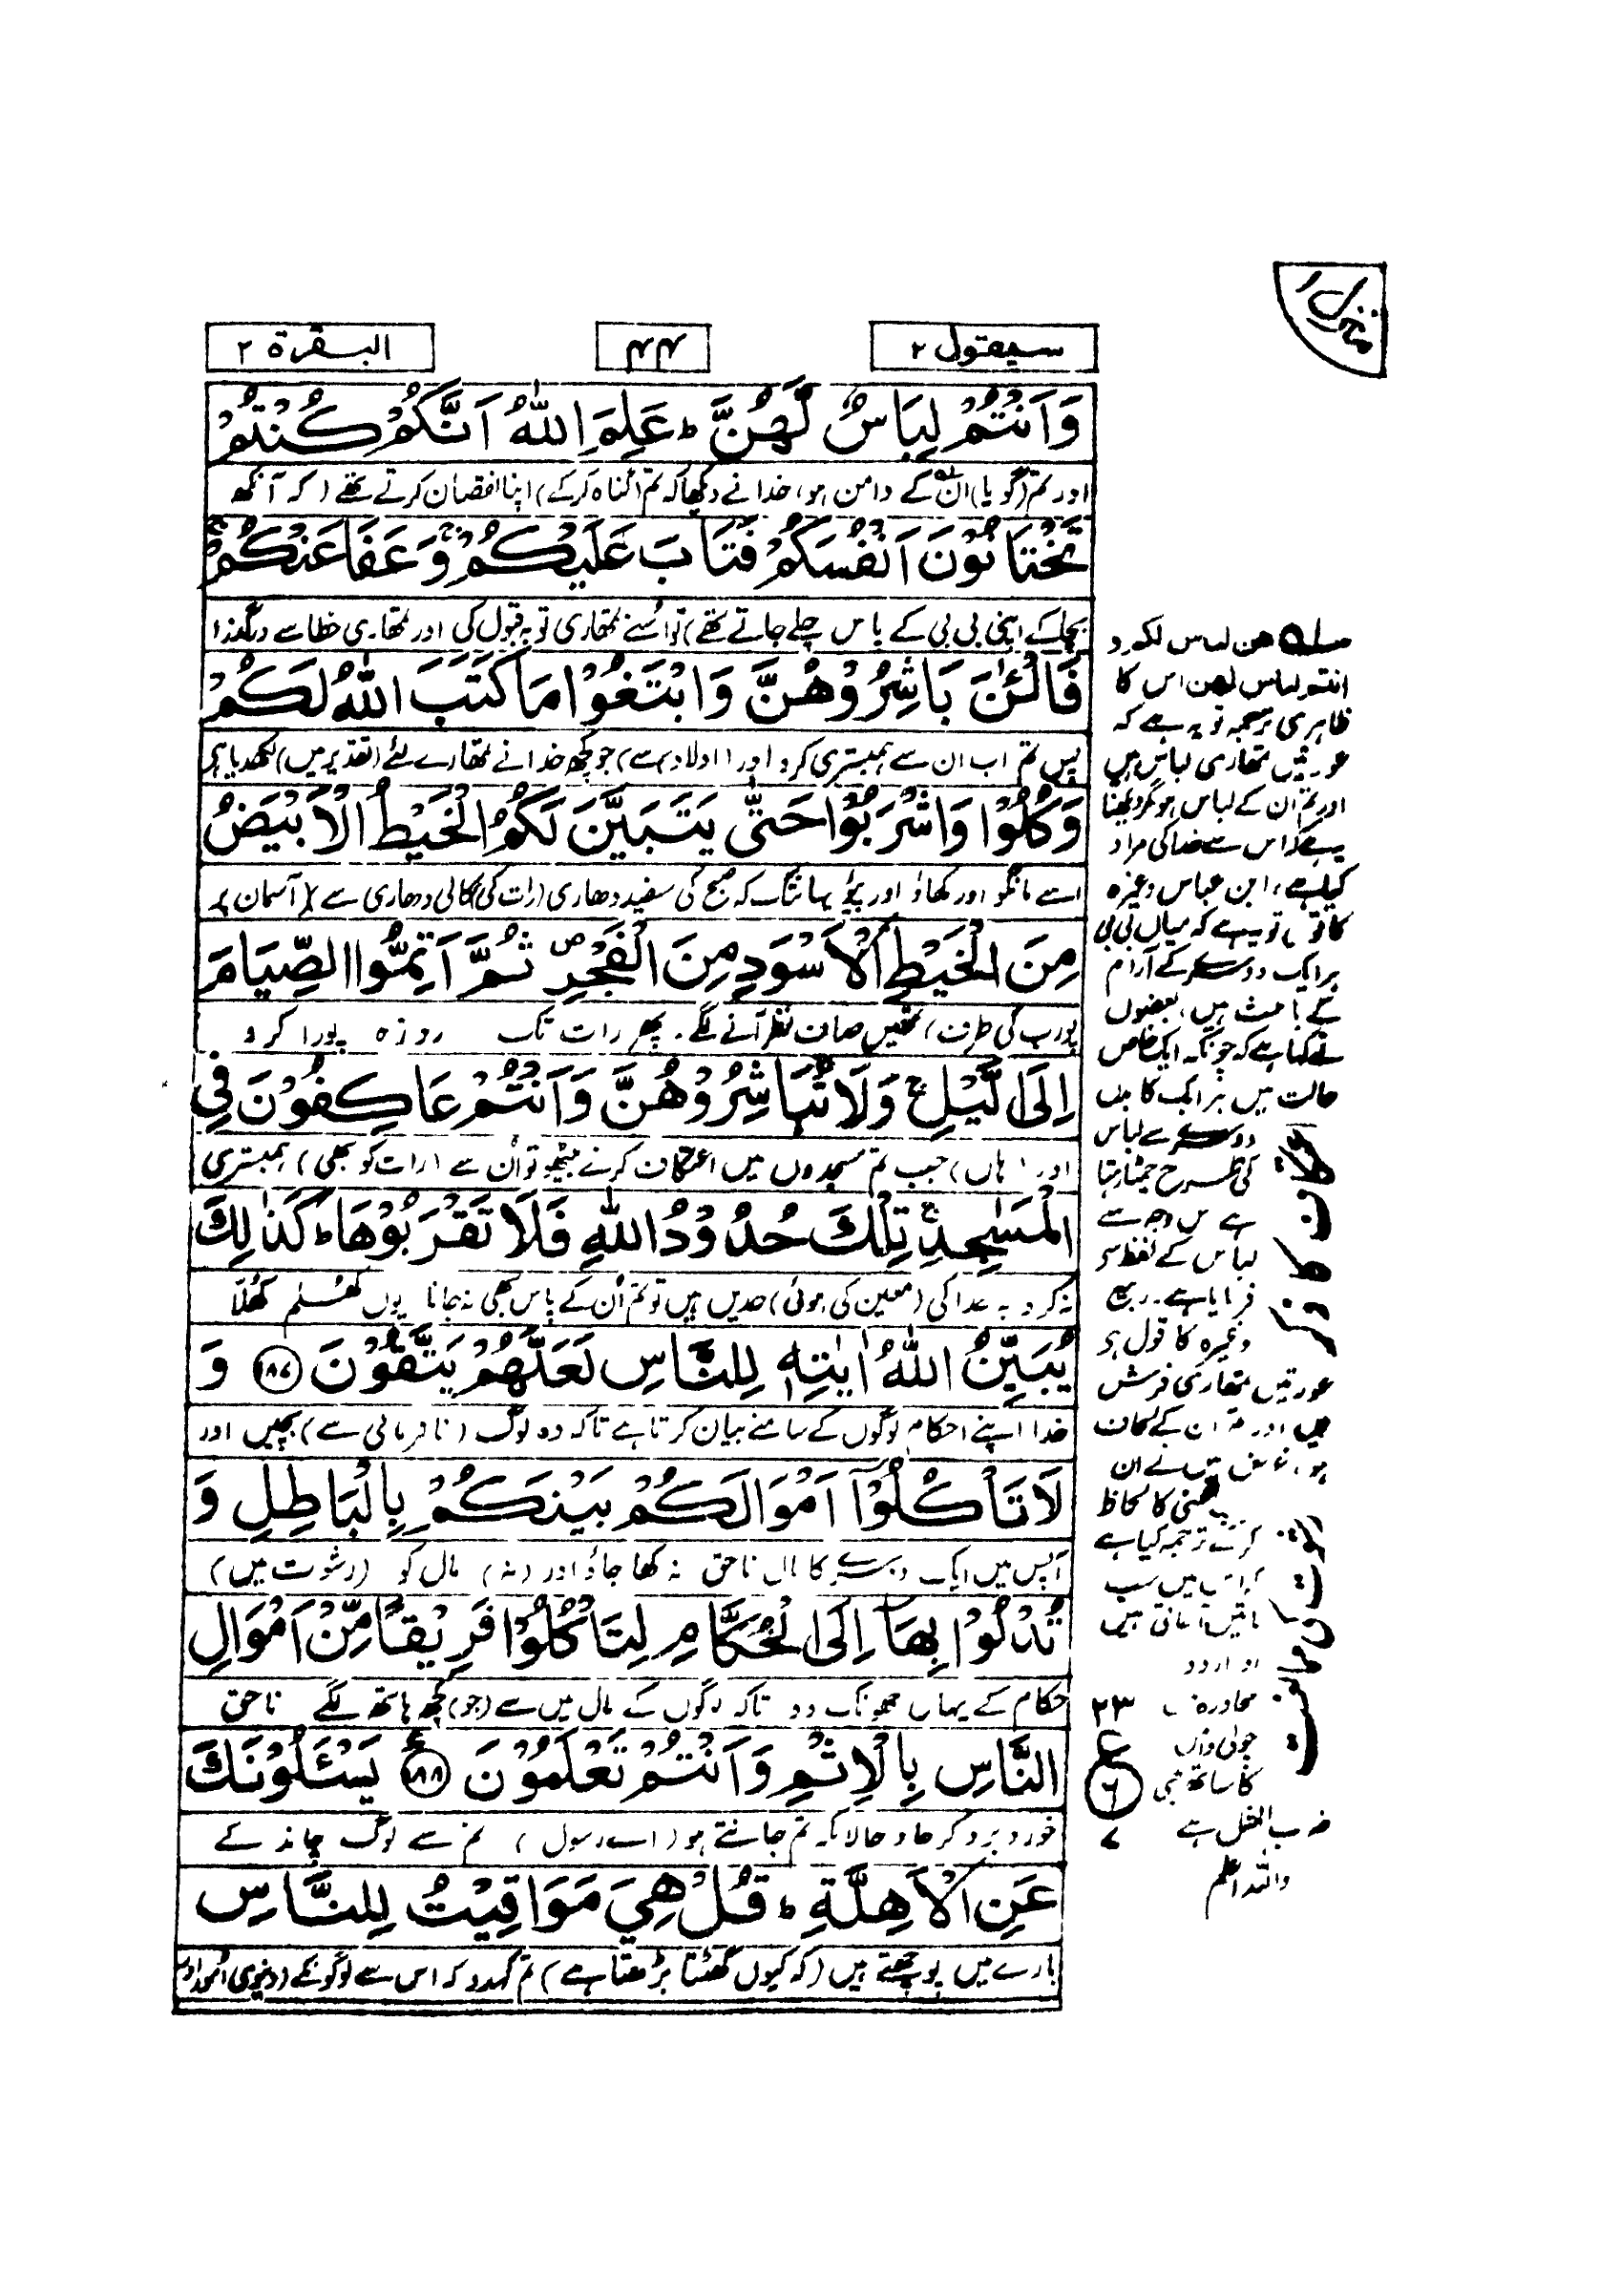 منزل ۱
سیقول ۲
۴۴
البقرة ۲
وَاَنْتُمْ لِبَاسٌ لَّهُنَّ ؕ عَلِمَ اللّٰهُ اَنَّكُمْ كُنْتُمْ
اور تم (گویا) ان کے دامن ہو، خدا نے دیکھا کہ تم (گناہ کرکے) اپنا نقصان کرتے تھے (کہ آنکھ
تَخْتَانُوْنَ اَنْفُسَكُمْ فَتَابَ عَلَيْكُمْ وَ عَفَا عَنْكُمْ ۚ
بچا کے اپنی بی بی کے پاس چلے جاتے تھے) تو اُسنے تمھاری توبہ قبول کی اور تمھاری خطا سے درگذرا
فَالْـٰٔنَ بَاشِرُوْهُنَّ وَابْتَغُوْا مَا كَتَبَ اللّٰهُ لَكُمْ
پس تم اب ان سے ہمبستری کرو اور (اولاد میں سے) جو کچھ خدا نے تمھارے لئے (تقدیر میں) لکھدیا ہے
وَكُلُوْا وَاشْرَبُوْا حَتّٰى يَتَبَيَّنَ لَكُمُ الْخَيْطُ الْاَبْيَضُ
اسے مانگو اور کھاؤ اور پیو یہانتک کہ صبح کی سفید دھاری (رات کی) کالی دھاری سے (آسمان پر
مِنَ الْخَيْطِ الْاَسْوَدِ مِنَ الْفَجْرِ ۪ ثُمَّ اَتِمُّوا الصِّيَامَ
پورب کی طرف) تمھیں صاف نظر آنے لگے۔ پھر رات تک روزہ پورا کرو
اِلَى الَّيْلِ ۚ وَلَا تُبَاشِرُوْهُنَّ وَاَنْتُمْ عَاكِفُوْنَ فِي
اور (ہاں) جب تم مسجدوں میں اعتکاف کرنے بیٹھو تو اُن سے (رات کو بھی) ہمبستری
الْمَسٰجِدِ ؕ تِلْكَ حُدُوْدُ اللّٰهِ فَلَا تَقْرَبُوْهَا ؕ كَذٰلِكَ
نہ کرو یہ خدا کی (معین کی ہوئی) حدیں ہیں تو تم اُن کے پاس بھی نہ جانا یوں کھُلم کھُلّا
يُبَيِّنُ اللّٰهُ اٰيٰتِهٖ لِلنَّاسِ لَعَلَّهُمْ يَتَّقُوْنَ ﴿۱۸۷﴾ وَ
خدا اپنے احکام لوگوں کے سامنے بیان کرتا ہے تاکہ وہ لوگ (نافرمانی سے) بچیں اور
لَا تَاْكُلُوْۤا اَمْوَالَكُمْ بَيْنَكُمْ بِالْبَاطِلِ وَ
آپس میں ایک دوسرے کا مال ناحق نہ کھا جاؤ اور (نہ) مال کو (رشوت میں)
تُدْلُوْا بِهَاۤ اِلَى الْحُكَّامِ لِتَاْكُلُوْا فَرِيْقًا مِّنْ اَمْوَالِ
حکام کے یہاں جھونک دو تاکہ لوگوں کے مال میں سے (جو) کچھ ہاتھ لگے ناحق
النَّاسِ بِالْاِثْمِ وَاَنْتُمْ تَعْلَمُوْنَ ﴿۱۸۸﴾ يَسْـَٔلُوْنَكَ
خورد برد کر جاؤ حالانکہ تم جانتے ہو (اے رسول) تم سے لوگ چاند کے
عَنِ الْاَهِلَّةِ ؕ قُلْ هِيَ مَوَاقِيْتُ لِلنَّاسِ
بارے میں پوچھتے ہیں (کہ کیوں گھٹتا بڑھتا ہے) تم کہدو کہ اس سے لوگونکے (دنیوی امور اور
هن لباس لکم و
انتم لباس لهن اس کا
ظاہری ترجمہ تو یہ ہے کہ
عورتیں تمھاری لباس ہیں
اور تم ان کے لباس ہو مگر دیکھنا
یہ ہے کہ اس سے خدا کی مراد
کیا ہے، ابن عباس وغیرہ
کا قول تو یہ ہے کہ میاں بی بی
ہر ایک دوسرے کے آرام
کے باعث ہیں، بعضوں
نے کہا ہے کہ چونکہ ایک خاص
حالت میں ہر ایک کا بدن
دوسرے سے لباس
کی طرح چمٹا رہتا
ہے اس وجہ سے
لباس کے لفظ سے
فرمایا ہے۔ ربیع
وغیرہ کا قول ہے
عورتیں تمھاری فرش
ہیں اور تم ان کے لحاف
ہو،
معنی کا لحاظ
کرکے ترجمہ کیا ہے
میں سب
باتیں آجاتی ہیں
اور اردو
محاورہ
چولی دامن
کا ساتھ بھی
ضرب المثل ہے
واللہ اعلم
۲۳
ع
۶
۷